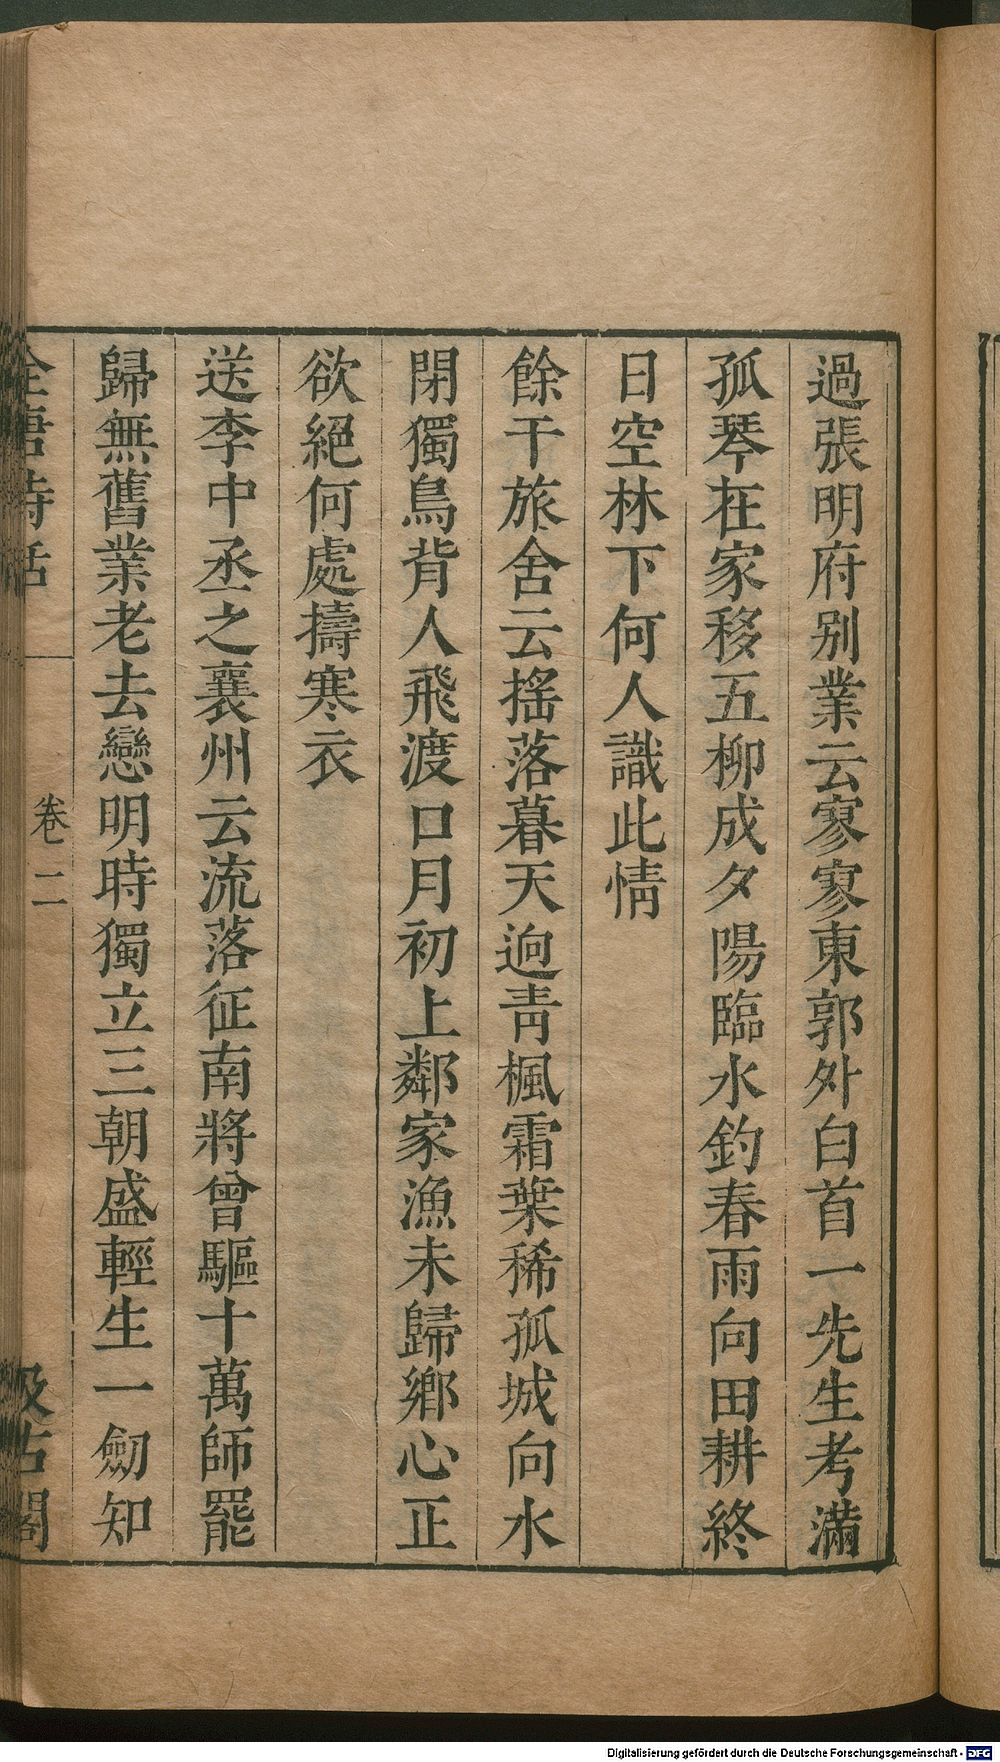 過張明府别業云寥寥東郭外白首一先生考滿
孤琴在家移五柳成夕陽臨水釣春雨向田耕終
日空林下何人識此情
餘干旅舍云搖落暮天迥青楓霜葉稀孤城向水
閉獨鳥背人飛渡口月初上鄰家漁未歸鄉心正
欲絕何處擣寒衣
送李中丞之襄州云流落征南將曾驅十萬師罷
歸無舊業老去戀明時獨立三朝盛輕生一劒知
全唐詩話 卷二 汲古閣
Digitalisierung gefördert durch die Deutsche Forschungsgemeinschaft - DFG